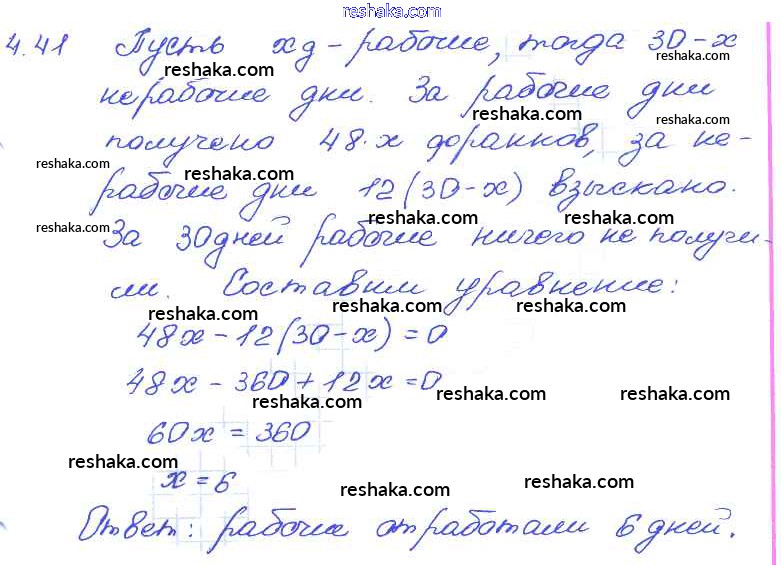 reshaka.com
4.41 Пусть x д - рабочие, тогда 30-x
reshaka.com reshaka.com
нерабочие дни. За рабочие дни
reshaka.com reshaka.com
получено 48·x форанков, за не-
reshaka.com reshaka.com
рабочие дни 12(30-x) взыскано.
reshaka.com reshaka.com reshaka.com
За 30 дней рабочие ничего не получи-
ли. Составим уравнение:
reshaka.com reshaka.com reshaka.com
48x-12(30-x)=0
48x-360+12x=0
reshaka.com reshaka.com reshaka.com
60x=360
reshaka.com
x=6
reshaka.com reshaka.com
Ответ: рабочие отработали 6 дней.